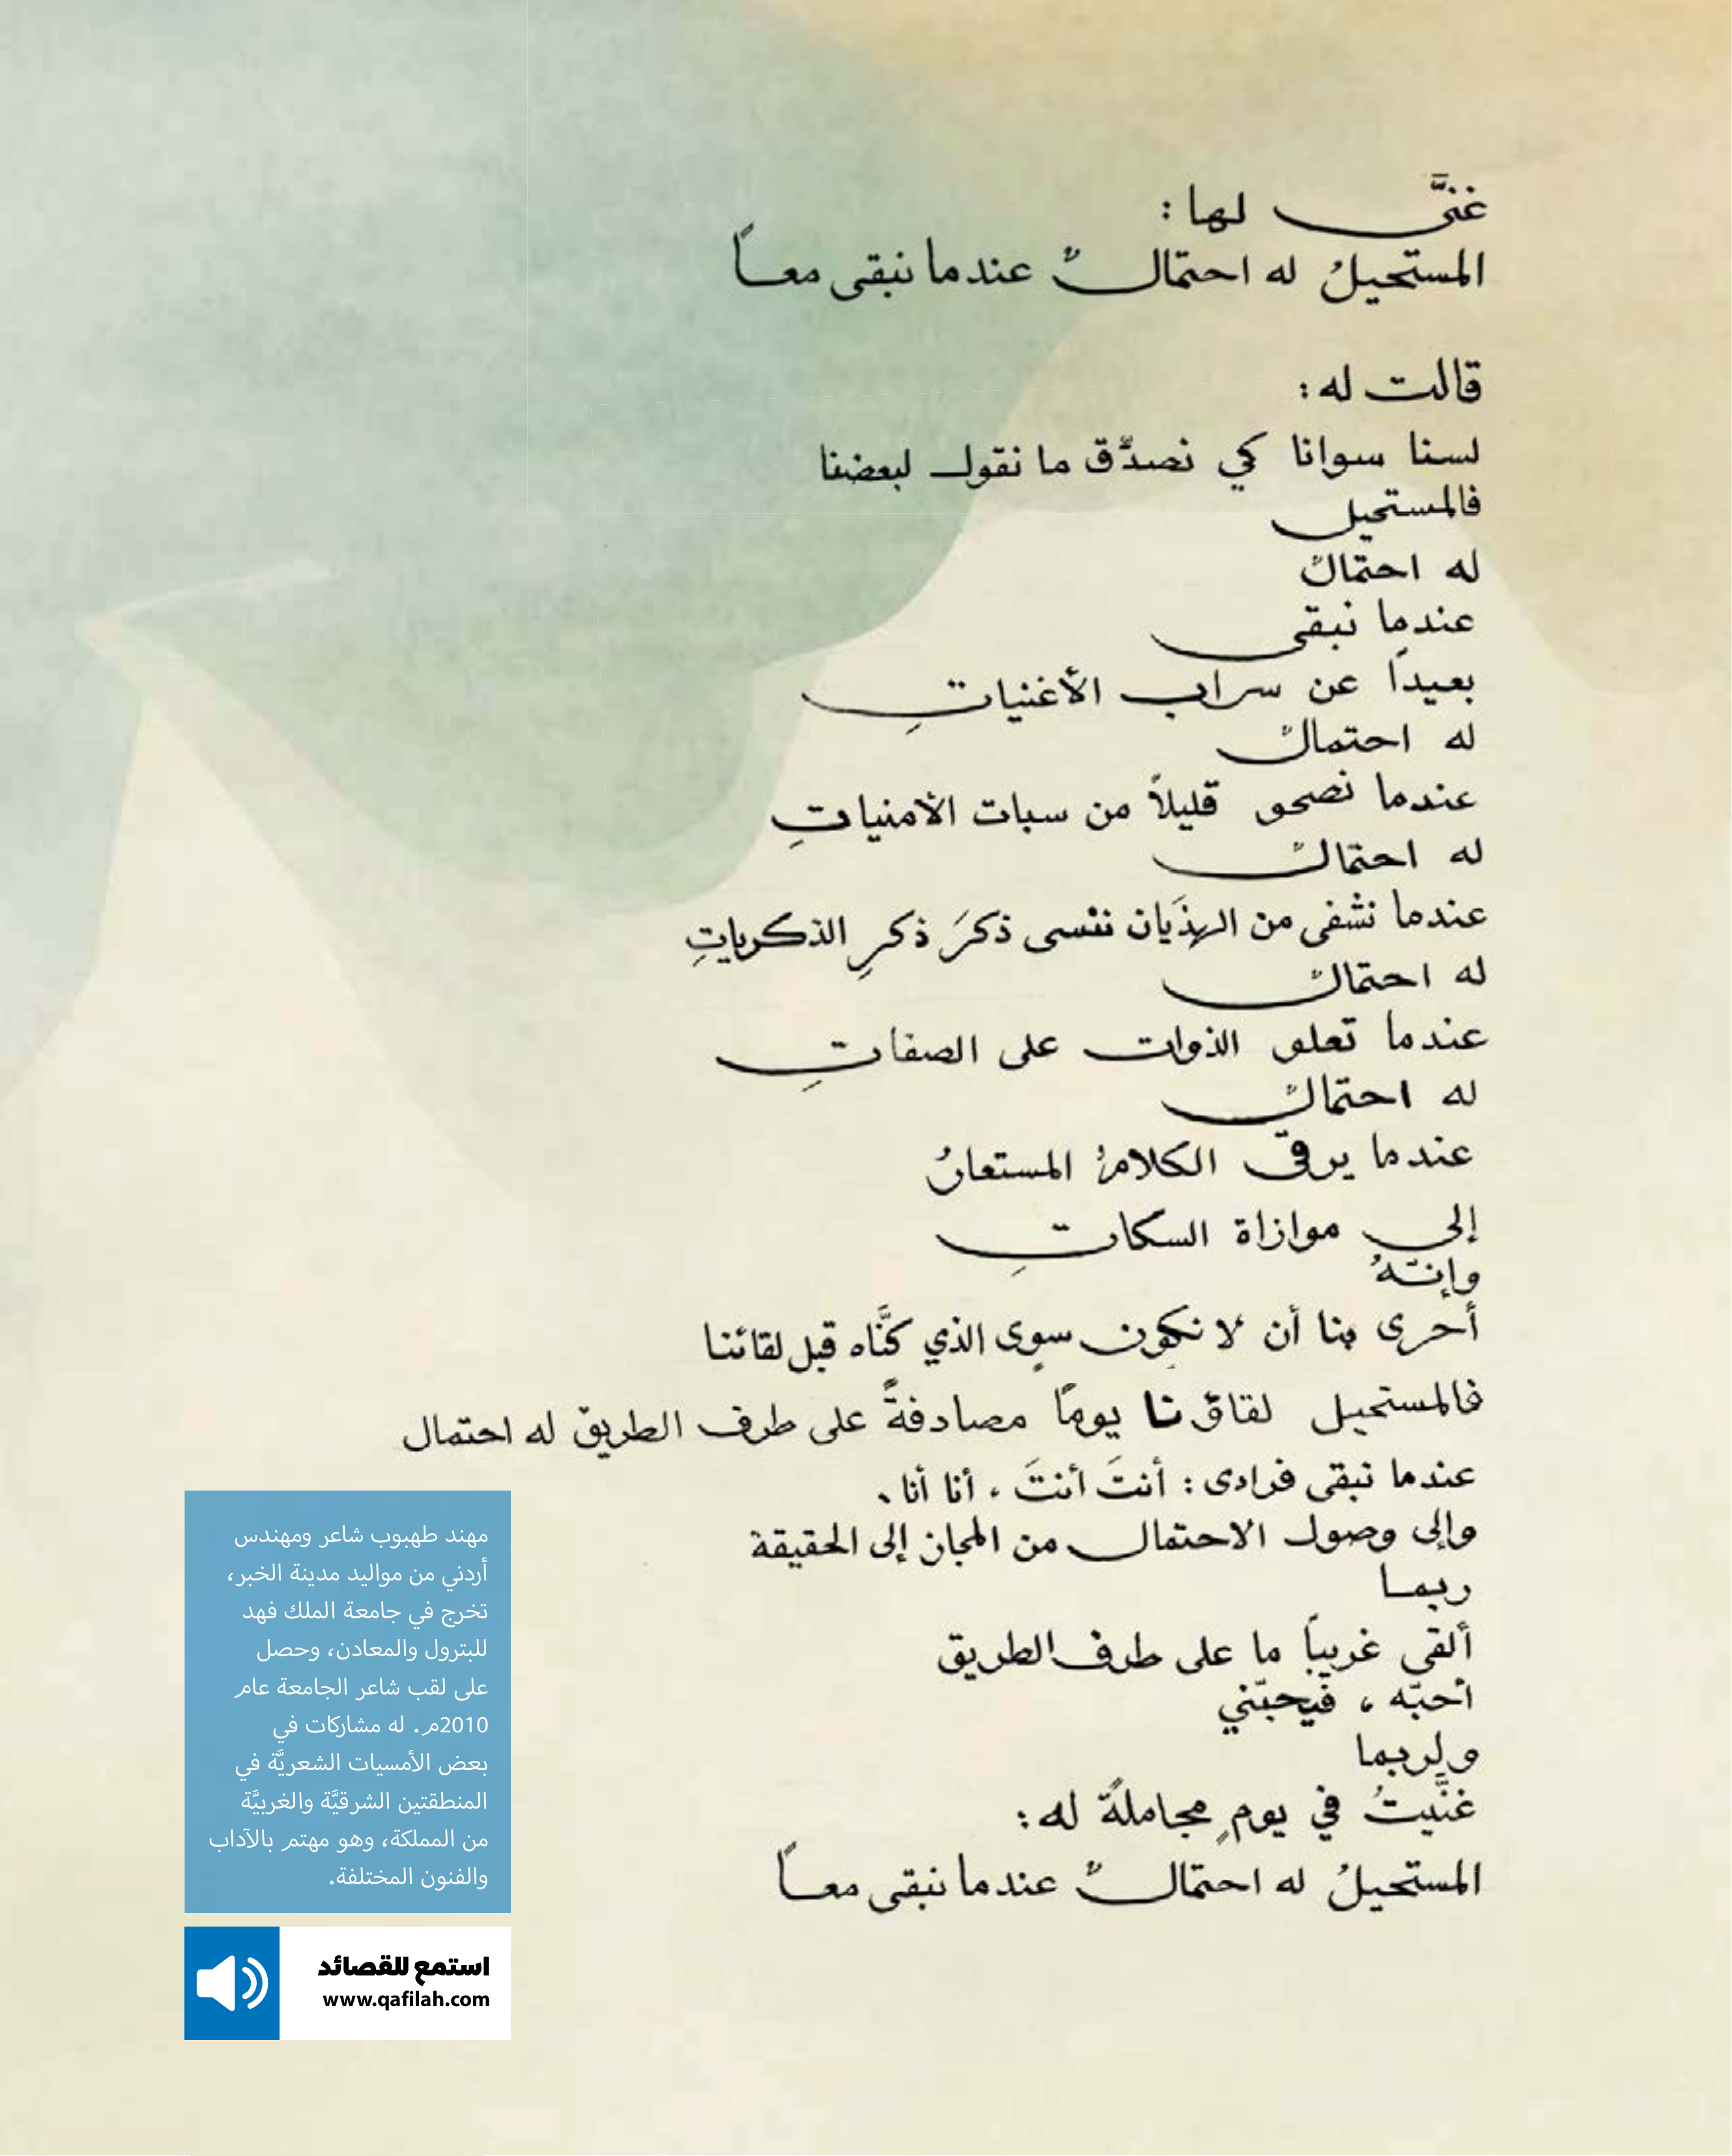 غنَّى لها :
المستحيلُ له احتمالٌ عندما نبقى معاً
قالت له :
لسنا سوانا كي نصدّق ما نقول لبعضنا
فالمستحيل
له احتمالٌ
عندما نبقى
بعيداً عن سراب الأغنياتِ
له احتمالٌ
عندما نصحو قليلاً من سبات الأمنياتِ
له احتمالٌ
عندما نشفى من الهذَيان ننسى ذكرَ ذكرِ الذكرياتِ
له احتمالٌ
عندما تعلو الذوات على الصفاتِ
له احتمالٌ
عندما يرقى الكلامُ المستعارُ
إلى موازاة السكاتِ
وإنّهُ
أحرى بنا أن لا نكون سوى الذي كنَّاه قبل لقائنا
فالمستحيل لقاؤنا يوماً مصادفةً على طرف الطريق له احتمال
عندما نبقى فرادى : أنتَ أنتَ ، أنا أنا ،
وإلى وصول الاحتمال من المجاز إلى الحقيقة
ربما
ألقى غريباً ما على طرف الطريق
أحبّه ، فيحبّني
ولربما
غنَّيتُ في يومٍ مجاملةً له :
المستحيلُ له احتمالٌ عندما نبقى معاً
مهند طهبوب شاعر ومهندس
أردني من مواليد مدينة الخبر،
تخرج في جامعة الملك فهد
للبترول والمعادن، وحصل
على لقب شاعر الجامعة عام
2010م. له مشاركات في
بعض الأمسيات الشعريَّة في
المنطقتين الشرقيَّة والغربيَّة
من المملكة، وهو مهتم بالآداب
والفنون المختلفة.
استمع للقصائد
www.qafilah.com